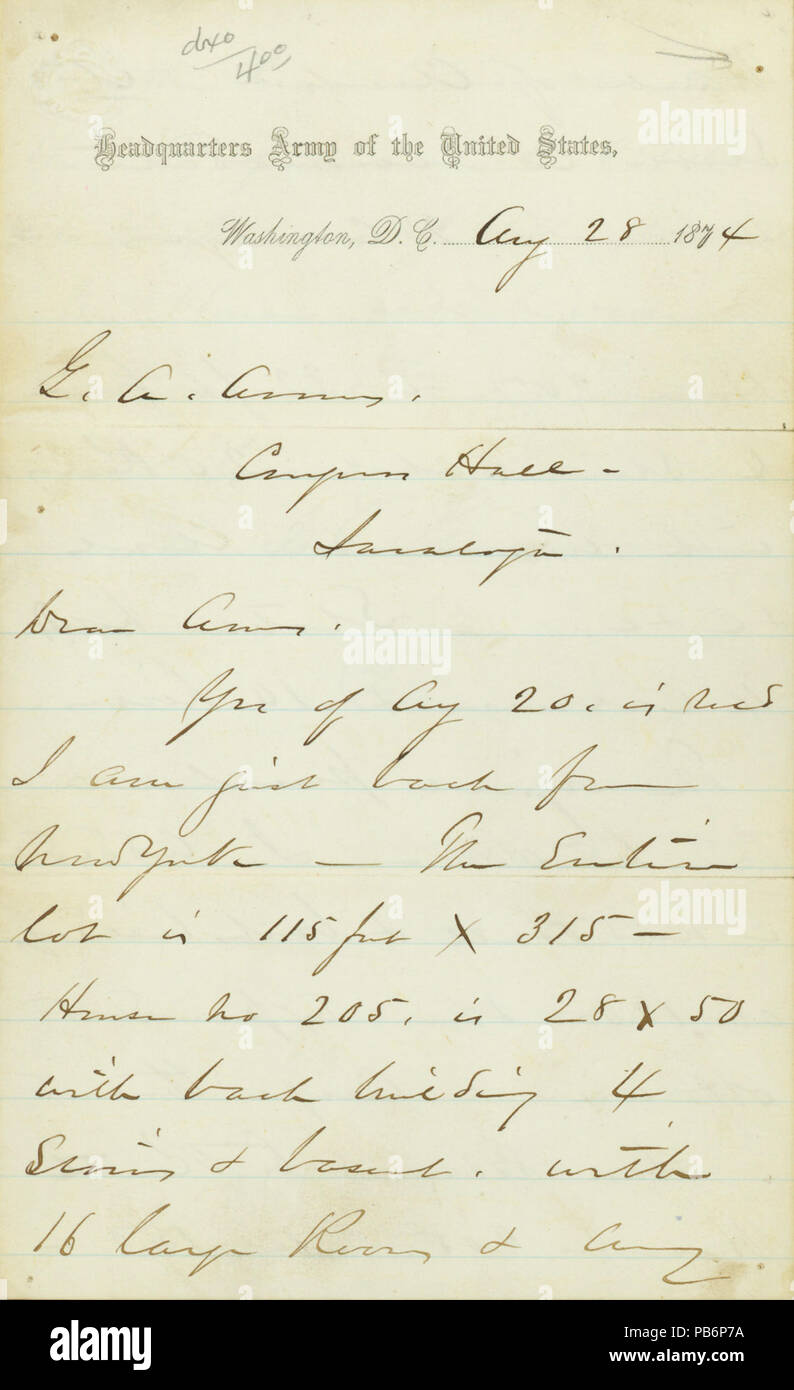 dxo
400
Headquarters Army of the United States,
Washington, D. C. Aug 28 1874
G. A. Armes.
Congress Hall -
Saratoga.
Dear Armes.
Yrs of Aug 20. is recd
I am just back from
New York — The Entire
lot is 115 feet X 315 —
House no 205. is 28 X 50
with back building 4
Stories & basemt. with
16 large Rooms & any
alamy stock photo
PB6P7A
www.alamy.com